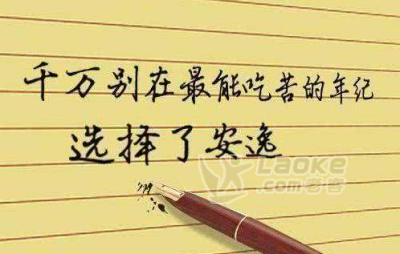 千万别在最能吃苦的年纪
选择了安逸
Laoke
.com老客